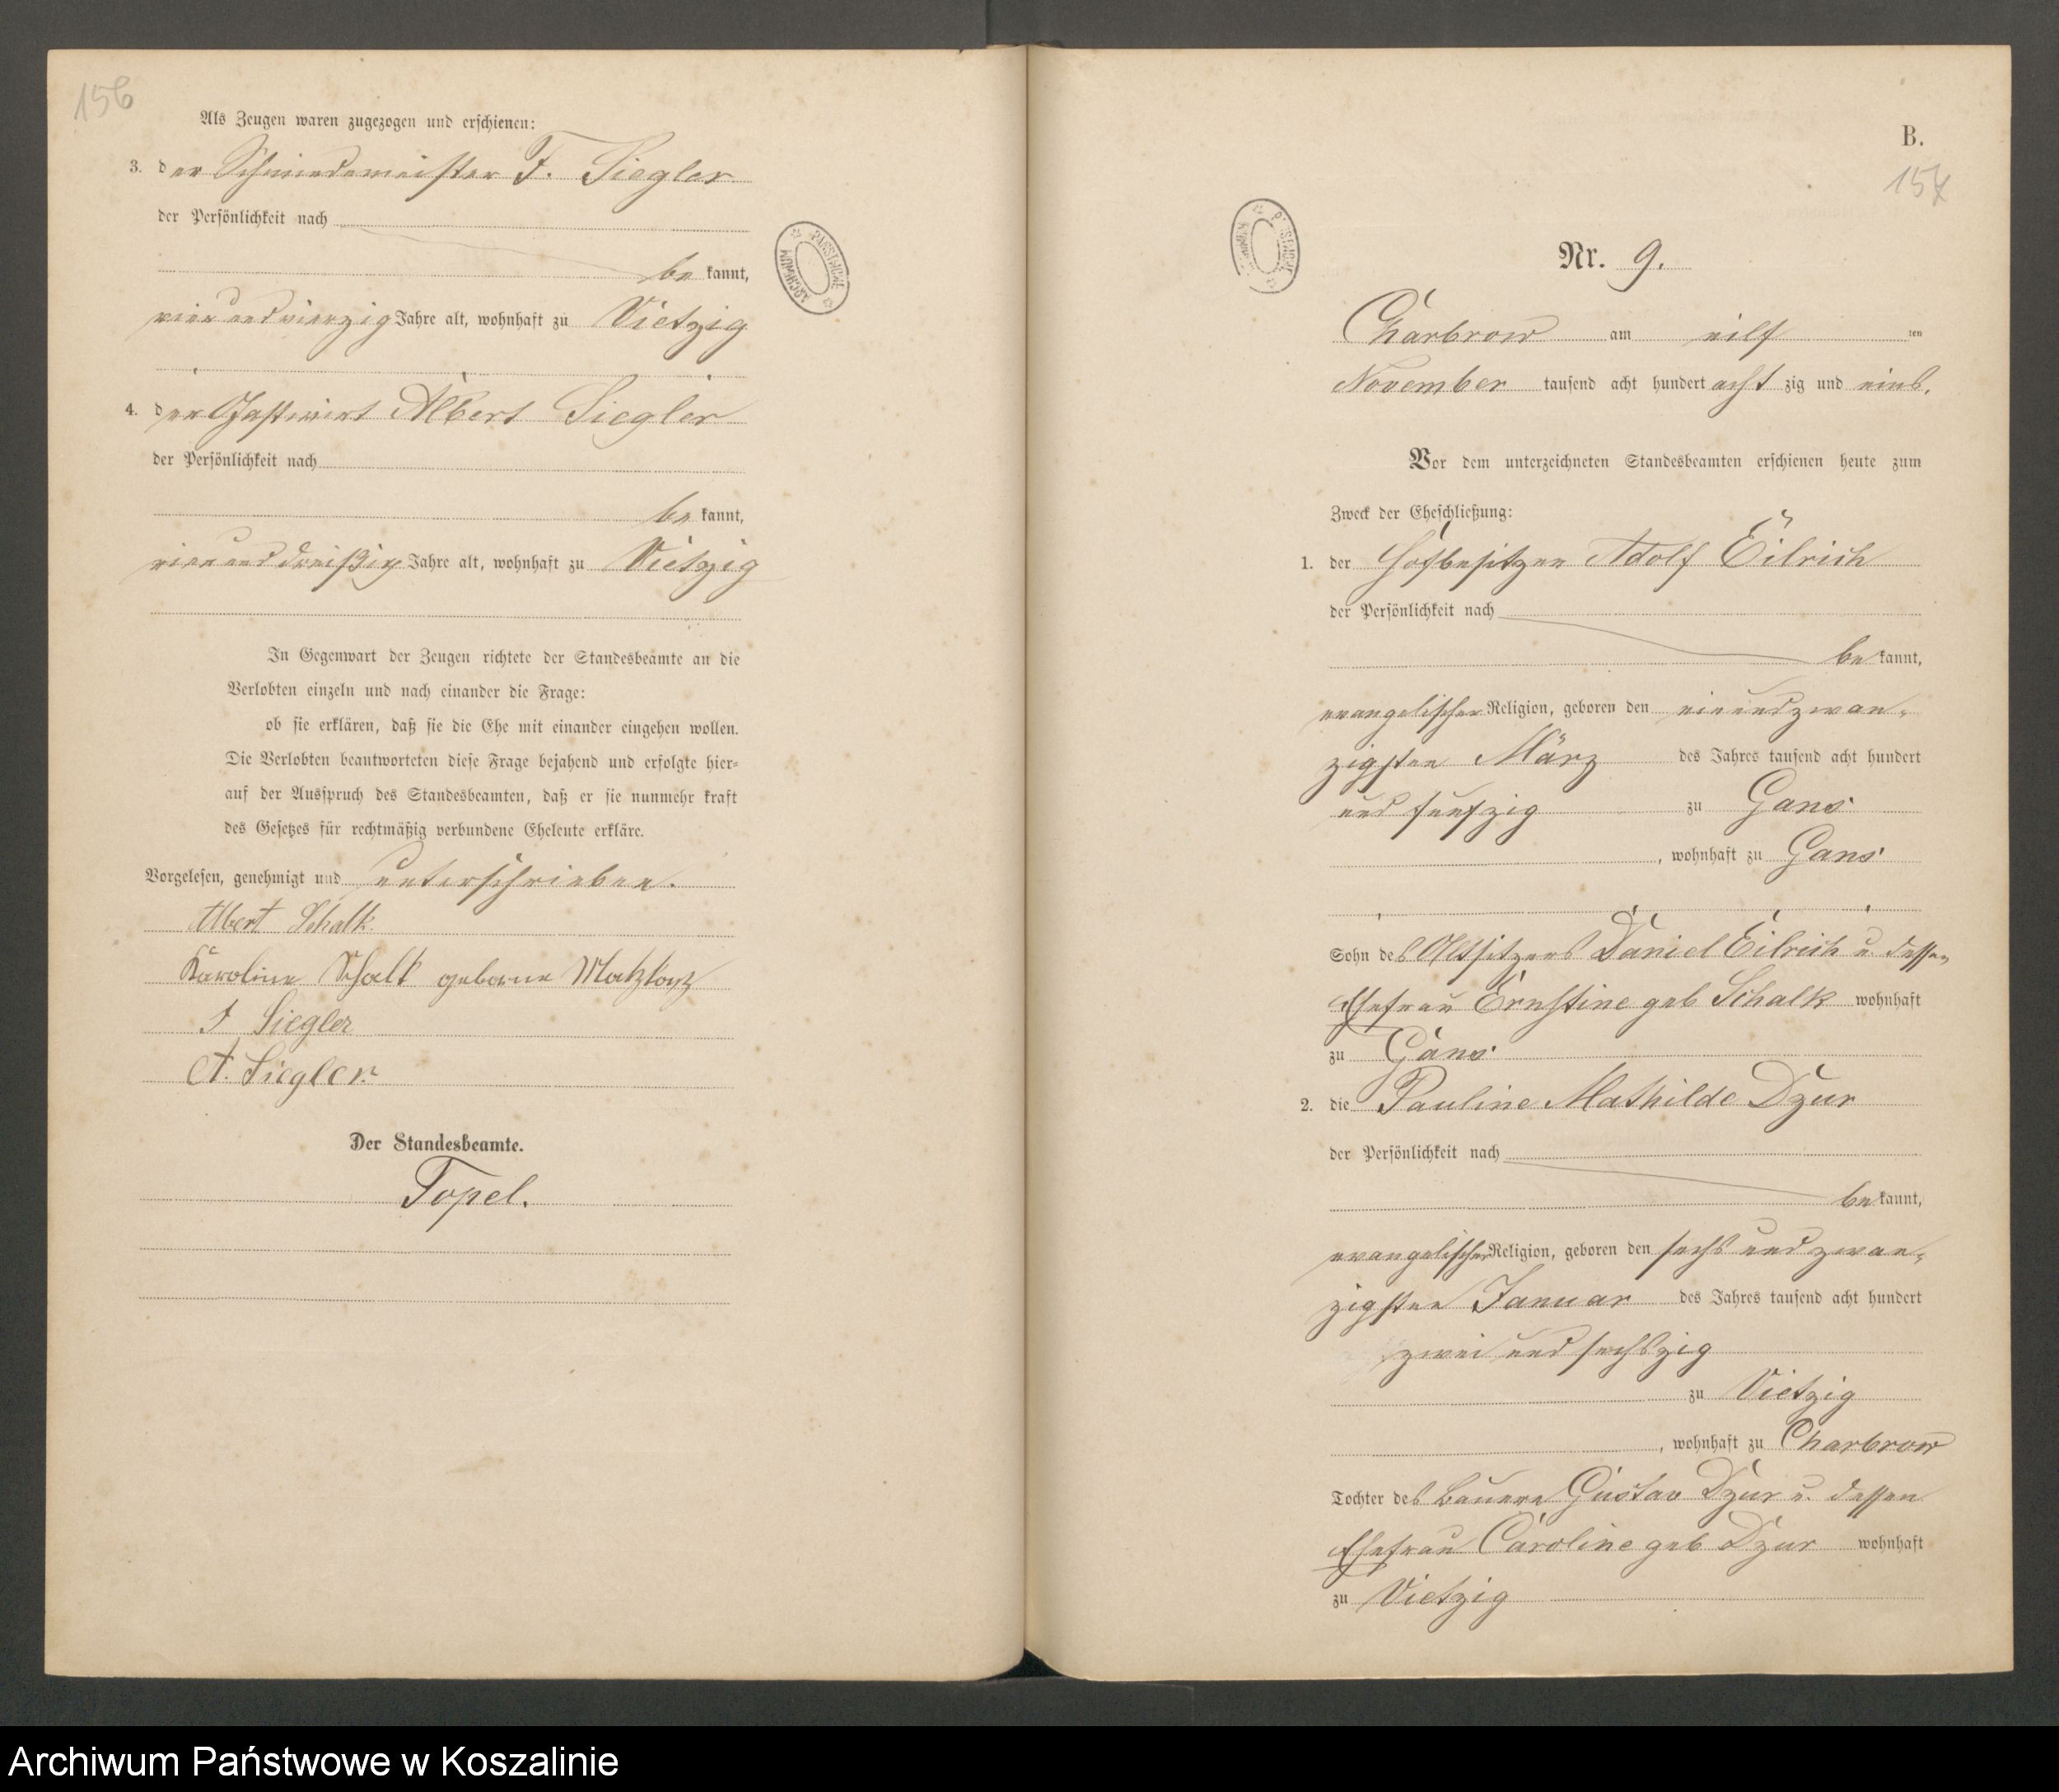 156
Als Zeugen waren zugezogen und erschienen:
3. der Schmiedemeister F. Siegler
der Persönlichkeit nach
be kannt,
vier und vierzig Jahre alt, wohnhaft zu Vietzig
4. der Gastwirt Albert Siegler
der Persönlichkeit nach
be kannt,
vier und dreißig Jahre alt, wohnhaft zu Vietzig
In Gegenwart der Zeugen richtete der Standesbeamte an die
Verlobten einzeln und nach einander die Frage:
ob sie erklären, daß sie die Ehe mit einander eingehen wollen.
Die Verlobten beantworteten diese Frage bejahend und erfolgte hier-
auf der Ausspruch des Standesbeamten, daß er sie nunmehr kraft
des Gesetzes für rechtmäßig verbundene Eheleute erkläre.
Vorgelesen, genehmigt und unterschrieben.
Albert Schalk.
Karoline Schalk geborne
F Siegler
A. Siegler.
Der Standesbeamte.
Topel.
B.
157
Nr. 9.
Charbrow am eilf ten
November tausend acht hundert acht zig und eins.
Vor dem unterzeichneten Standesbeamten erschienen heute zum
Zweck der Eheschließung:
1. der Hofbesitzer Adolf Eilrich
der Persönlichkeit nach
be kannt,
evangelischer Religion, geboren den ein und zwan-
zigsten März des Jahres tausend acht hundert
und funfzig zu Gans
, wohnhaft zu Gans
Sohn des Altsitzers Daniel Eilrich u. dessen
Ehefrau Ernstine geb Schalk wohnhaft
zu Gans
2. die Pauline Mathilde Dzur
der Persönlichkeit nach
be kannt,
evangelischer Religion, geboren den sechs und zwan-
zigsten Januar des Jahres tausend acht hundert
zwei und sechszig
zu Vietzig
, wohnhaft zu Charbrow
Tochter des Bauern Gustav Dzur u. dessen
Ehefrau Caroline geb Dzur wohnhaft
zu Vietzig
Archiwum Państwowe w Koszalinie